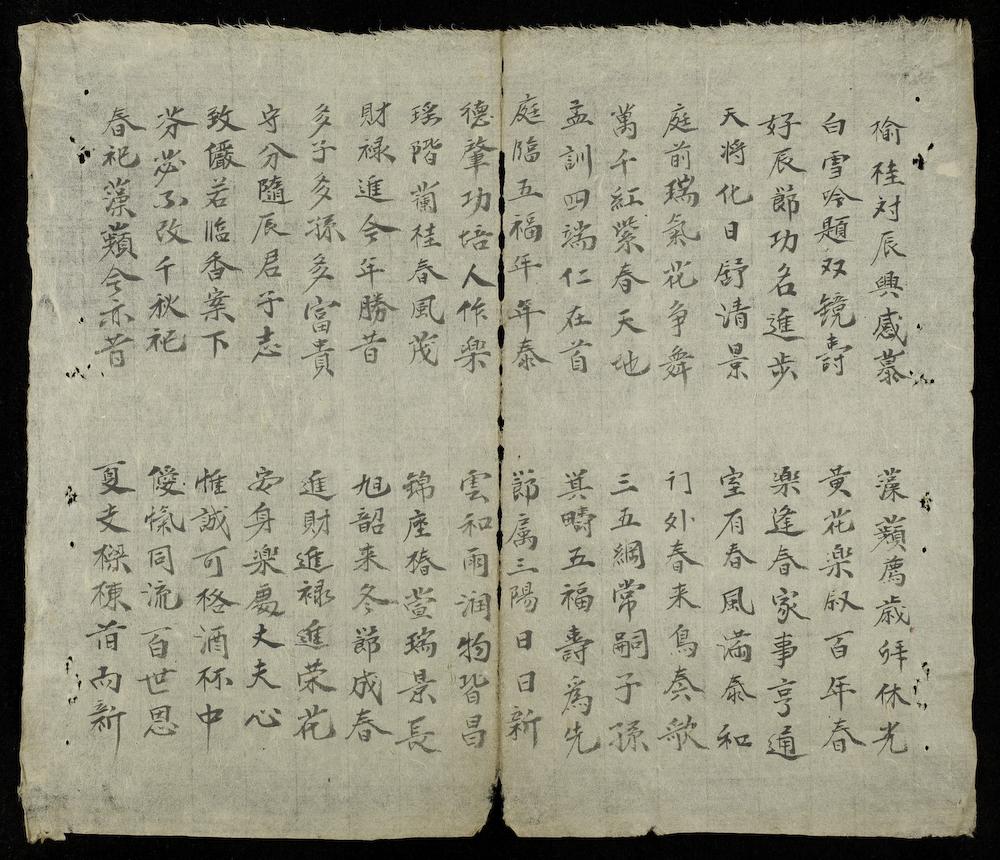 榆桂対辰興感慕
藻蘋薦歳拜休光
白雪吟題双鏡壽
黄花楽叙百年春
好辰節功名進步
楽逢春家事亨通
天将化日舒清景
室有春風满泰和
庭前瑞氣花争舞
门外春来鳥奏歌
萬千紅紫春天地
三五綱常嗣子孫
孟訓四端仁在首
箕疇五福壽為先
庭臨五福年年泰
節属三陽日日新
德肇功培人作楽
雲和雨润物皆昌
瑤階蘭桂春風茂
錦座椿萱瑞景長
財禄進今年勝昔
旭韶来冬節成春
多子多孫多富貴
進財進禄進荣花
守分隨辰君子志
安身楽處丈夫心
致儼若臨香案下
惟誠可格酒杯中
芬苾不改千秋祀
僾愾同流百世恩
春祀藻蘋今亦昔
夏支樑棟而新